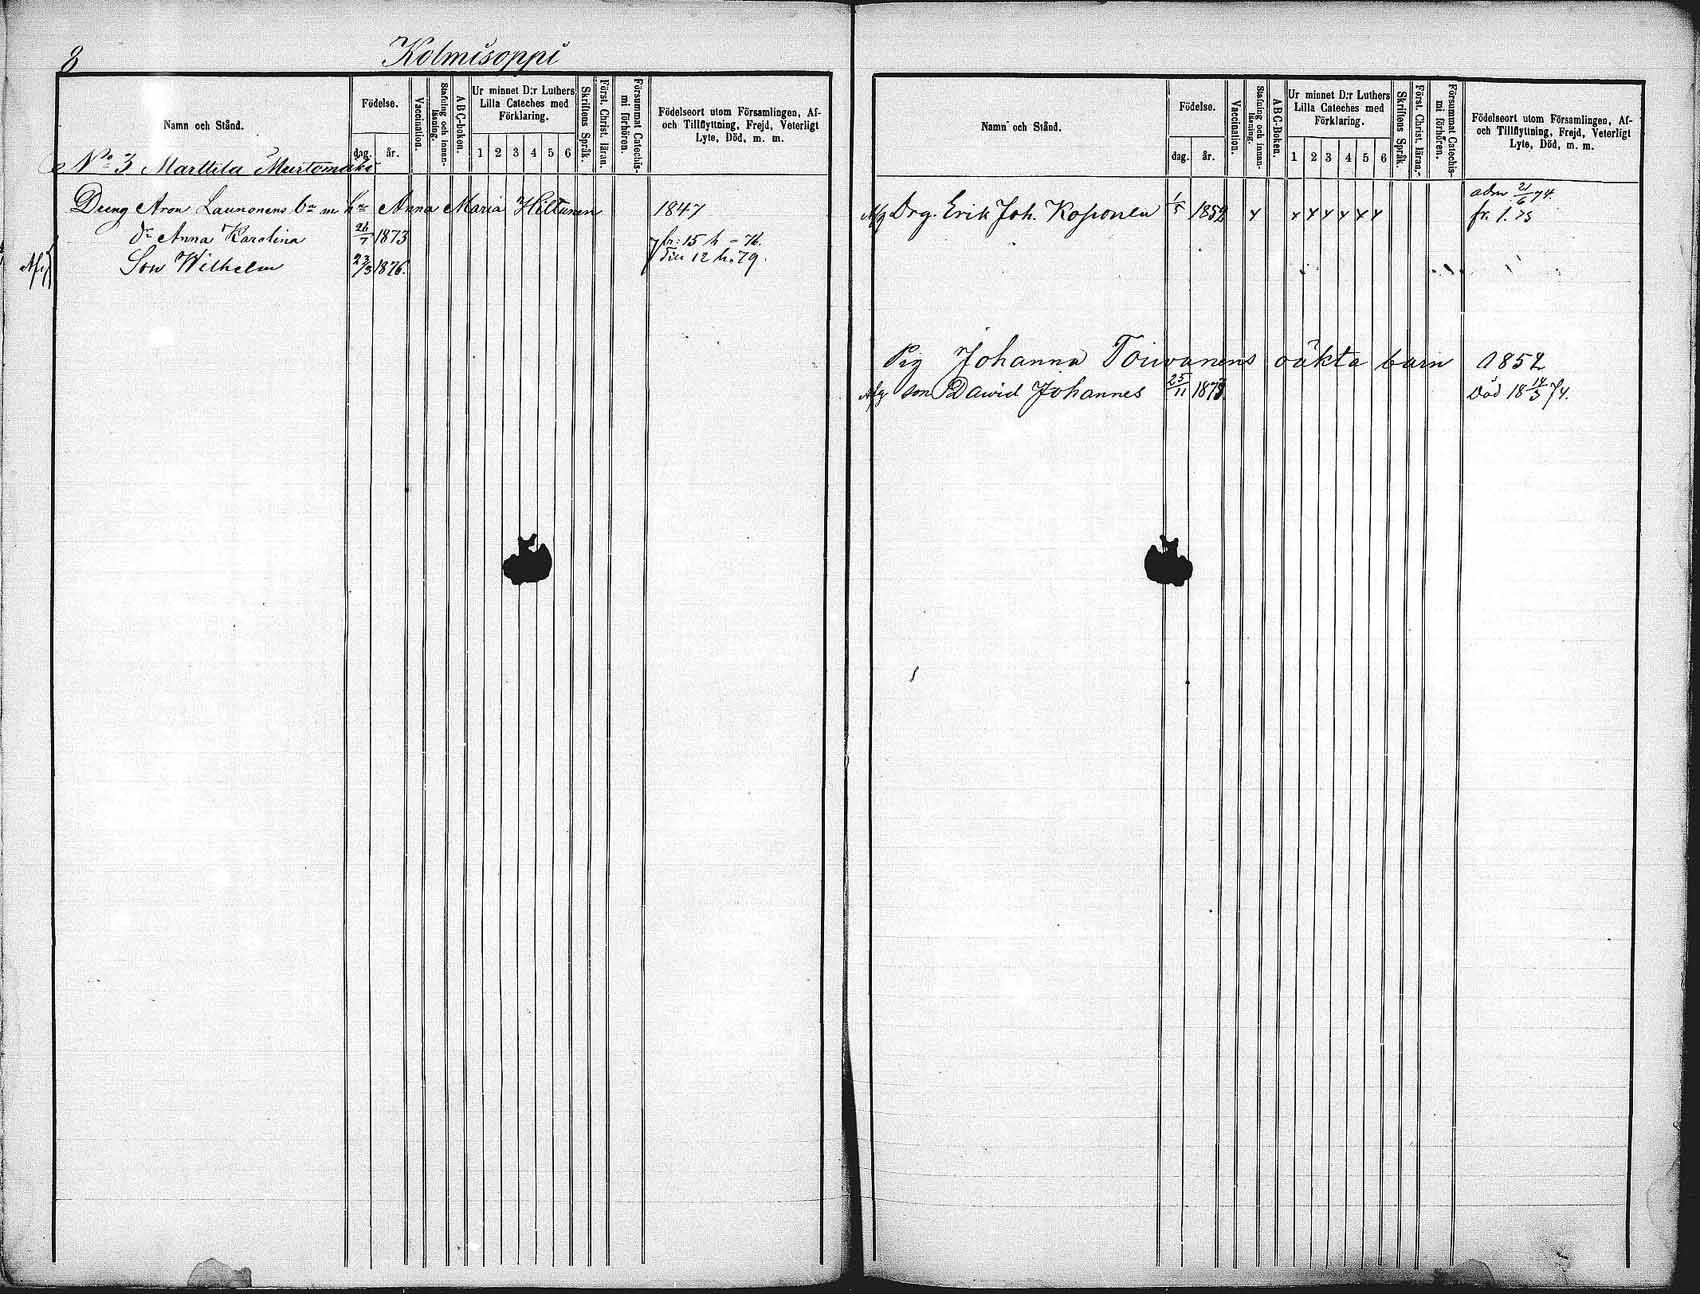 8
Kolmisoppi
Namn och Stånd.
Födelse.
dag.
år.
Vaccination.
Stafning och innan-
läsning.
ABC-boken.
Ur minnet D:r Luthers
Lilla Cateches med
Förklaring.
1 2 3 4 5 6
Skriftens Språk.
Först. Christ. läran.
Försummat Catechis-
mi förhören.
Födelseort utom Församlingen, Af-
och Tillflyttning, Frejd, Veterligt
Lyte, Död, m. m.
No 3 Marttila Murtomäki
Dreng Aron Launonens bn m hu Anna Maria Hiltunen 1847
Dr Anna Karolina 26/7 1873 fr. 15 h - 76.
Son Wilhelm 23/3 1876. Till 12 h. 79.
Namn och Stånd.
Födelse.
dag.
år.
Vaccination.
Stafning och innan-
läsning.
ABC-Boken.
Ur minnet D:r Luthers
Lilla Catheches med
Förklaring.
1 2 3 4 5 6
Skriftens Språk.
Först. Christ. läran.
Försummat Catechis-
mi förhören.
Födelseort utom Församlingen, Af-
och Tillflyttning, Frejd, Veterligt
Lyte, Död, m. m.
adm 21/6 74.
Afg Drg. Erik Joh. Koponen 1/5 1852 x x x x x x x fr. 1. 75
Pig Johanna Toiwanens oäkta barn 1852
Afg son Dawid Johannes 25/11 1873 Död 18 14/3 74.